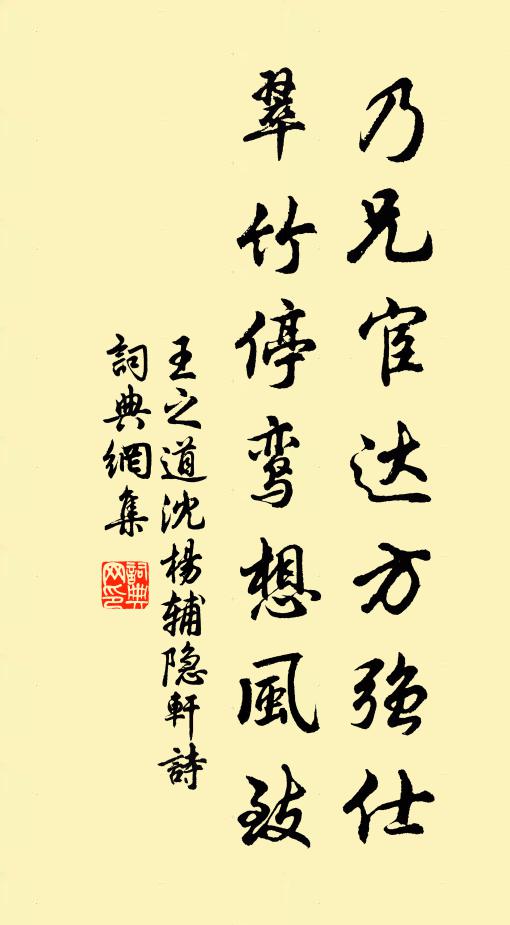 乃兄宦达方强仕
翠竹停鸾想風致
王之道沈楊辅隐軒詩
詞典網集
詞典网印